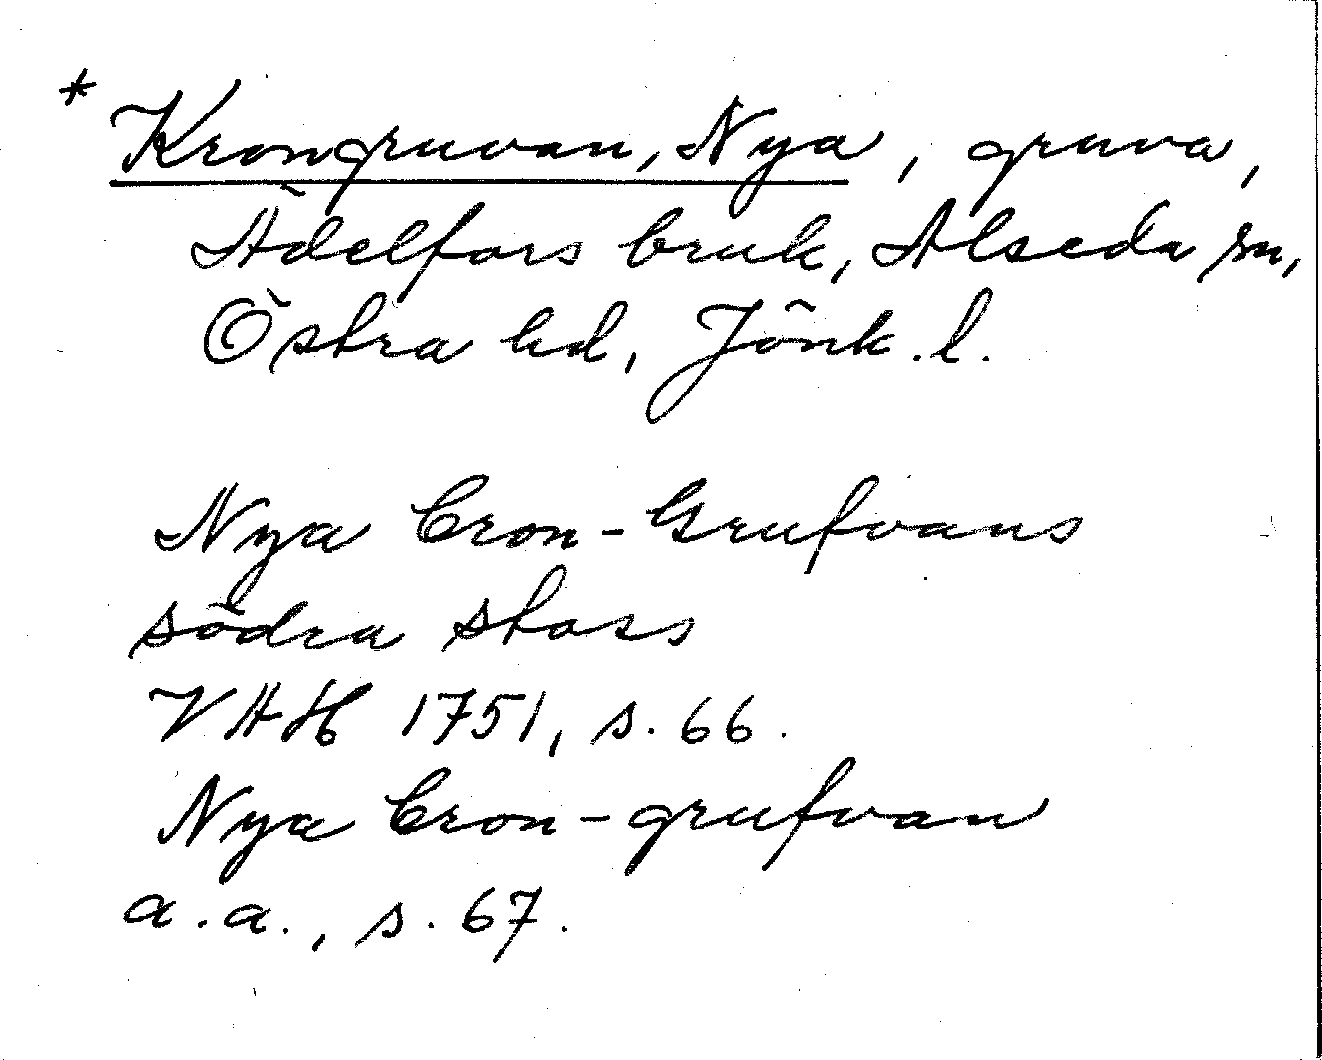 * Krongruvan, Nya, gruva,
Ädelfors bruk, Alseda sn,
Östra hd, Jönk. l.
Nya Cron-Grufvans
södra stoss
VAH 1751, s. 66.
Nya Cron-grufvan
a.a., s. 67.